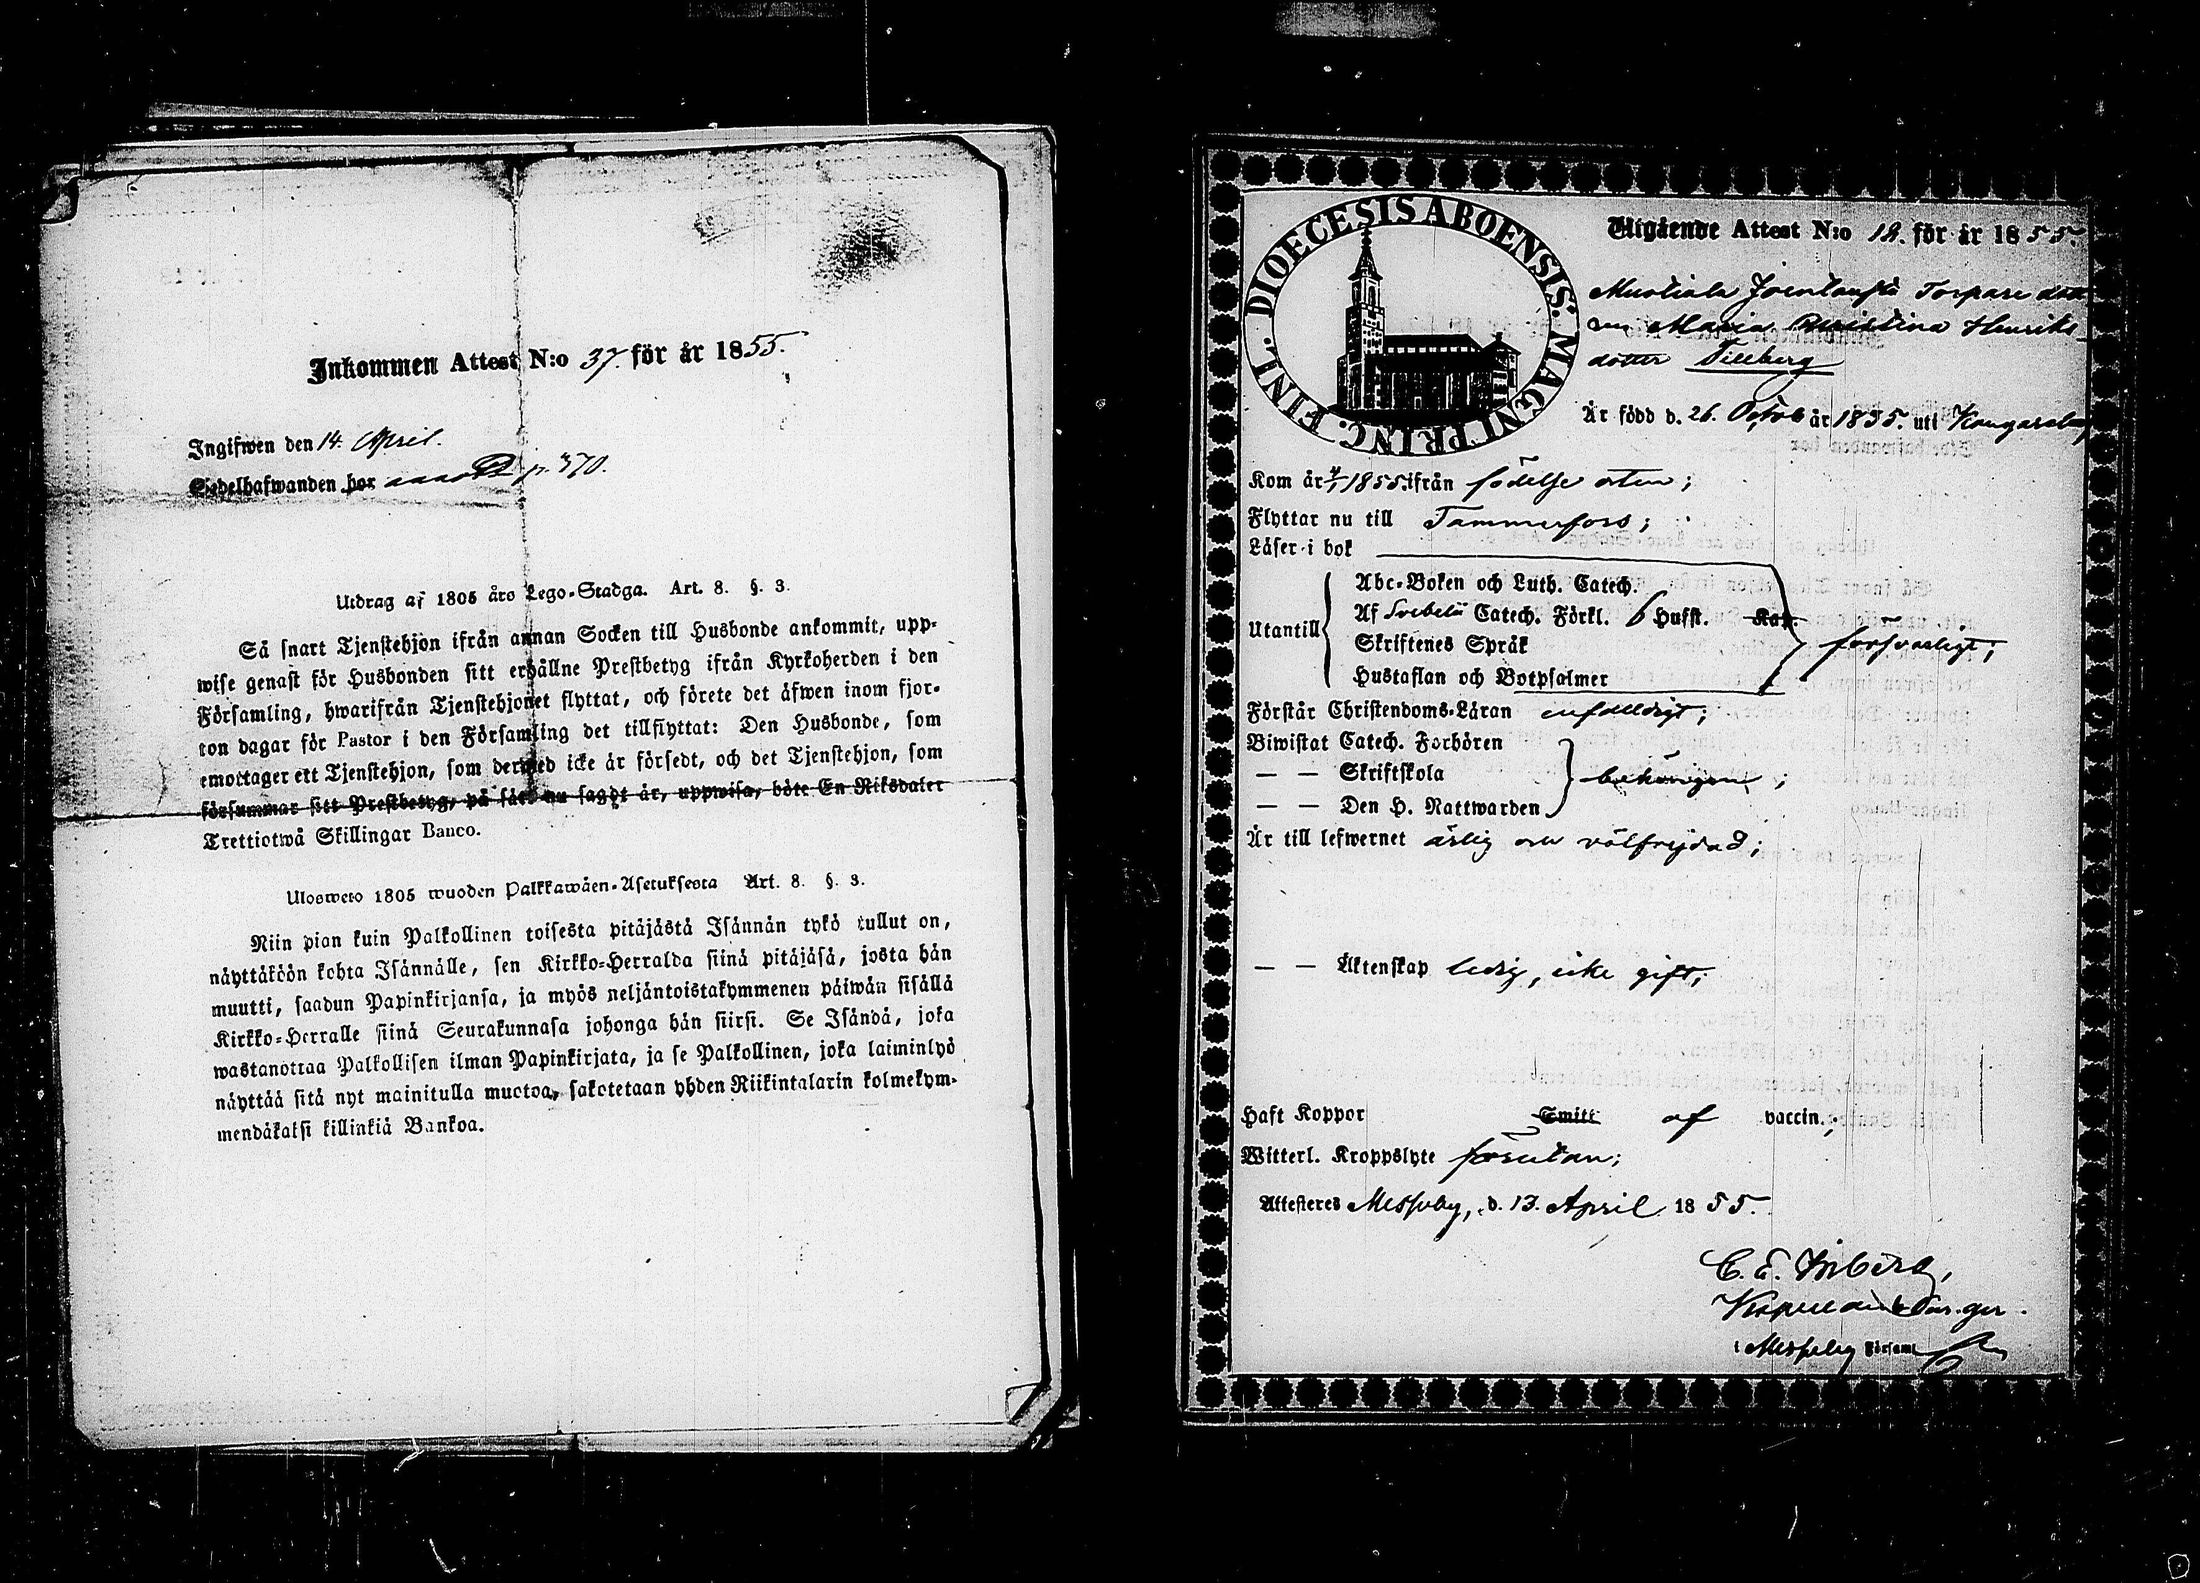 Inkommen Attest N:o 37. för år 1855.
Ingifwen den 14. April.
Sedelhafwanden bor p. 370.
Utdrag af 1805 års Lego-Stadga. Art. 8. §. 3.
Så snart Tjenstehjon ifrån annan Socken till Husbonde ankommit, upp-
wise genast för Husbonden sitt erhållne Prestbetyg ifrån Kyrkoherden i den
Församling, hwarifrån Tjenstehjonet flyttat, och förete det äfwen inom fjor-
ton dagar för Pastor i den Församling det tillflyttat: Den Husbonde, som
emottager ett Tjenstehjon, som dermed icke är försedt, och det Tjenstehjon, som
försummar sitt Prestbetyg, på sätt nu sagdt är, uppwisa, böte En Riksdaler
Trettiotwå Skillingar Banco.
Ulosweto 1805 wuoden Palkkawäen-Asetuksesta Art. 8. §. 3.
Niin pian kuin Palkollinen toisesta pitäjästä Isännän tykö tullut on,
näyttäköön kohta Isännälle, sen Kirkko-Herralda siinä pitäjäsä, josta hän
muutti, saadun Papinkirjansa, ja myös neljäntoistakymmenen päiwän sisällä
Kirkko-Herralle siinä Seurakunnasa johonga hän siirsi. Se Isändä, joka
wastanottaa Palkollisen ilman Papinkirjata, ja se Palkollinen, joka laiminlyö
näyttää sitä nyt mainitulla muotoa, sakotetaan yhden Riikintalarin kolmekym-
mendäkaksi killinkiä Bankoa.
DIOECESIS ABOENSIS. MAGNI PRINC. FINL.
Utgående Attest N:o 12. för år 1855.
Torpare dott
Maria Christina Henriks
dotter Tillberg
Är född d. 26. Octob år 1835. uti Kangasala
Kom år 1855. ifrån födelse orten;
Flyttar nu till Tammerfors;
Läser i bok
Utantill
Abc-Boken och Luth. Catech.
Af Svebelii Catech. Förkl. 6 Hufst. Kap.
Skriftenes Språk
Hustaflan och Botpsalmer
försvarligt;
Förstår Christendoms-Läran enfaldigt;
Biwistat Catech. Förhören
— — Skriftskola
— — Den H. Nattwarden
behörigen;
Är till lefwernet ärlig och välfrejdad;
— — Äktenskap ledig, icke gift;
Haft Koppor Smitt af vaccin.;
Witterl. Kroppslyte förutan;
Attesteras Messuby, d. 13. April 1855.
C. E.
i Messuby Församl